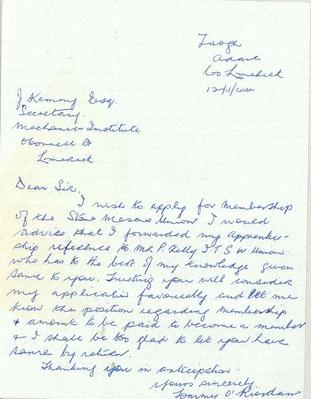 Adare
Co Limerick
J Kemmy Esq.
Secretary.
Mechanics Institute
O'Connell St
Limerick
Dear Sir,
I wish to apply for Membership
of the Stone Masons Union I would
advise that I forwarded my apprentice-
ship reference to Mr. P. Kelly I T S W Union.
who has to the best of my knowledge given
same to you. Trusting you will consider
my application favourably and let me
know the position regarding membership
& amount to be paid to become a member
& I shall be too glad to let you have
same by return.
Thanking you in anticipation.
Yours sincerely.
Tommy O'Riordan